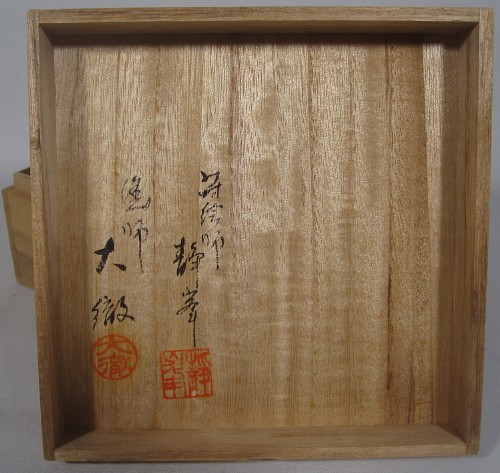 蒔絵師
静峯
塗師
大徹
大徹